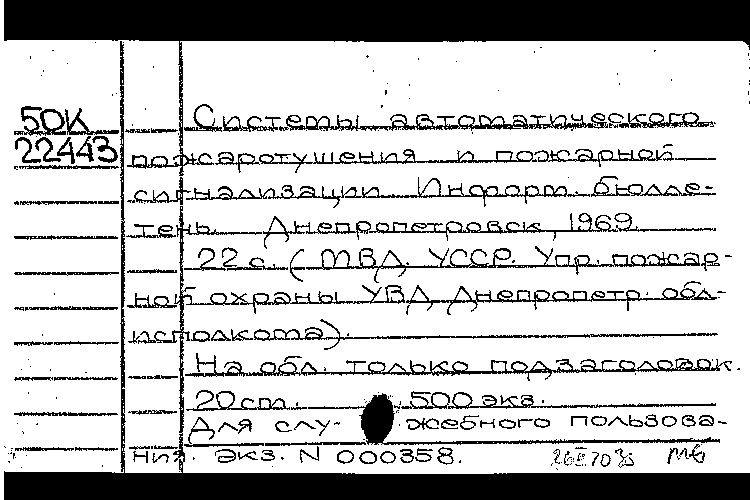 50К
22443
Системы автоматического
пожаротушения и пожарной
сигнализации. Информ. бюлле-
тень. Днепропетровск, 1969.
22 с. (МВД. УССР. Упр. пожар-
ной охраны УВД Днепропетр. обл-
исполкома).
На обл. только подзаголовок.
20 см. 500 экз.
Для слу- жебного пользова-
ния. Экз. N 000358.
МБ